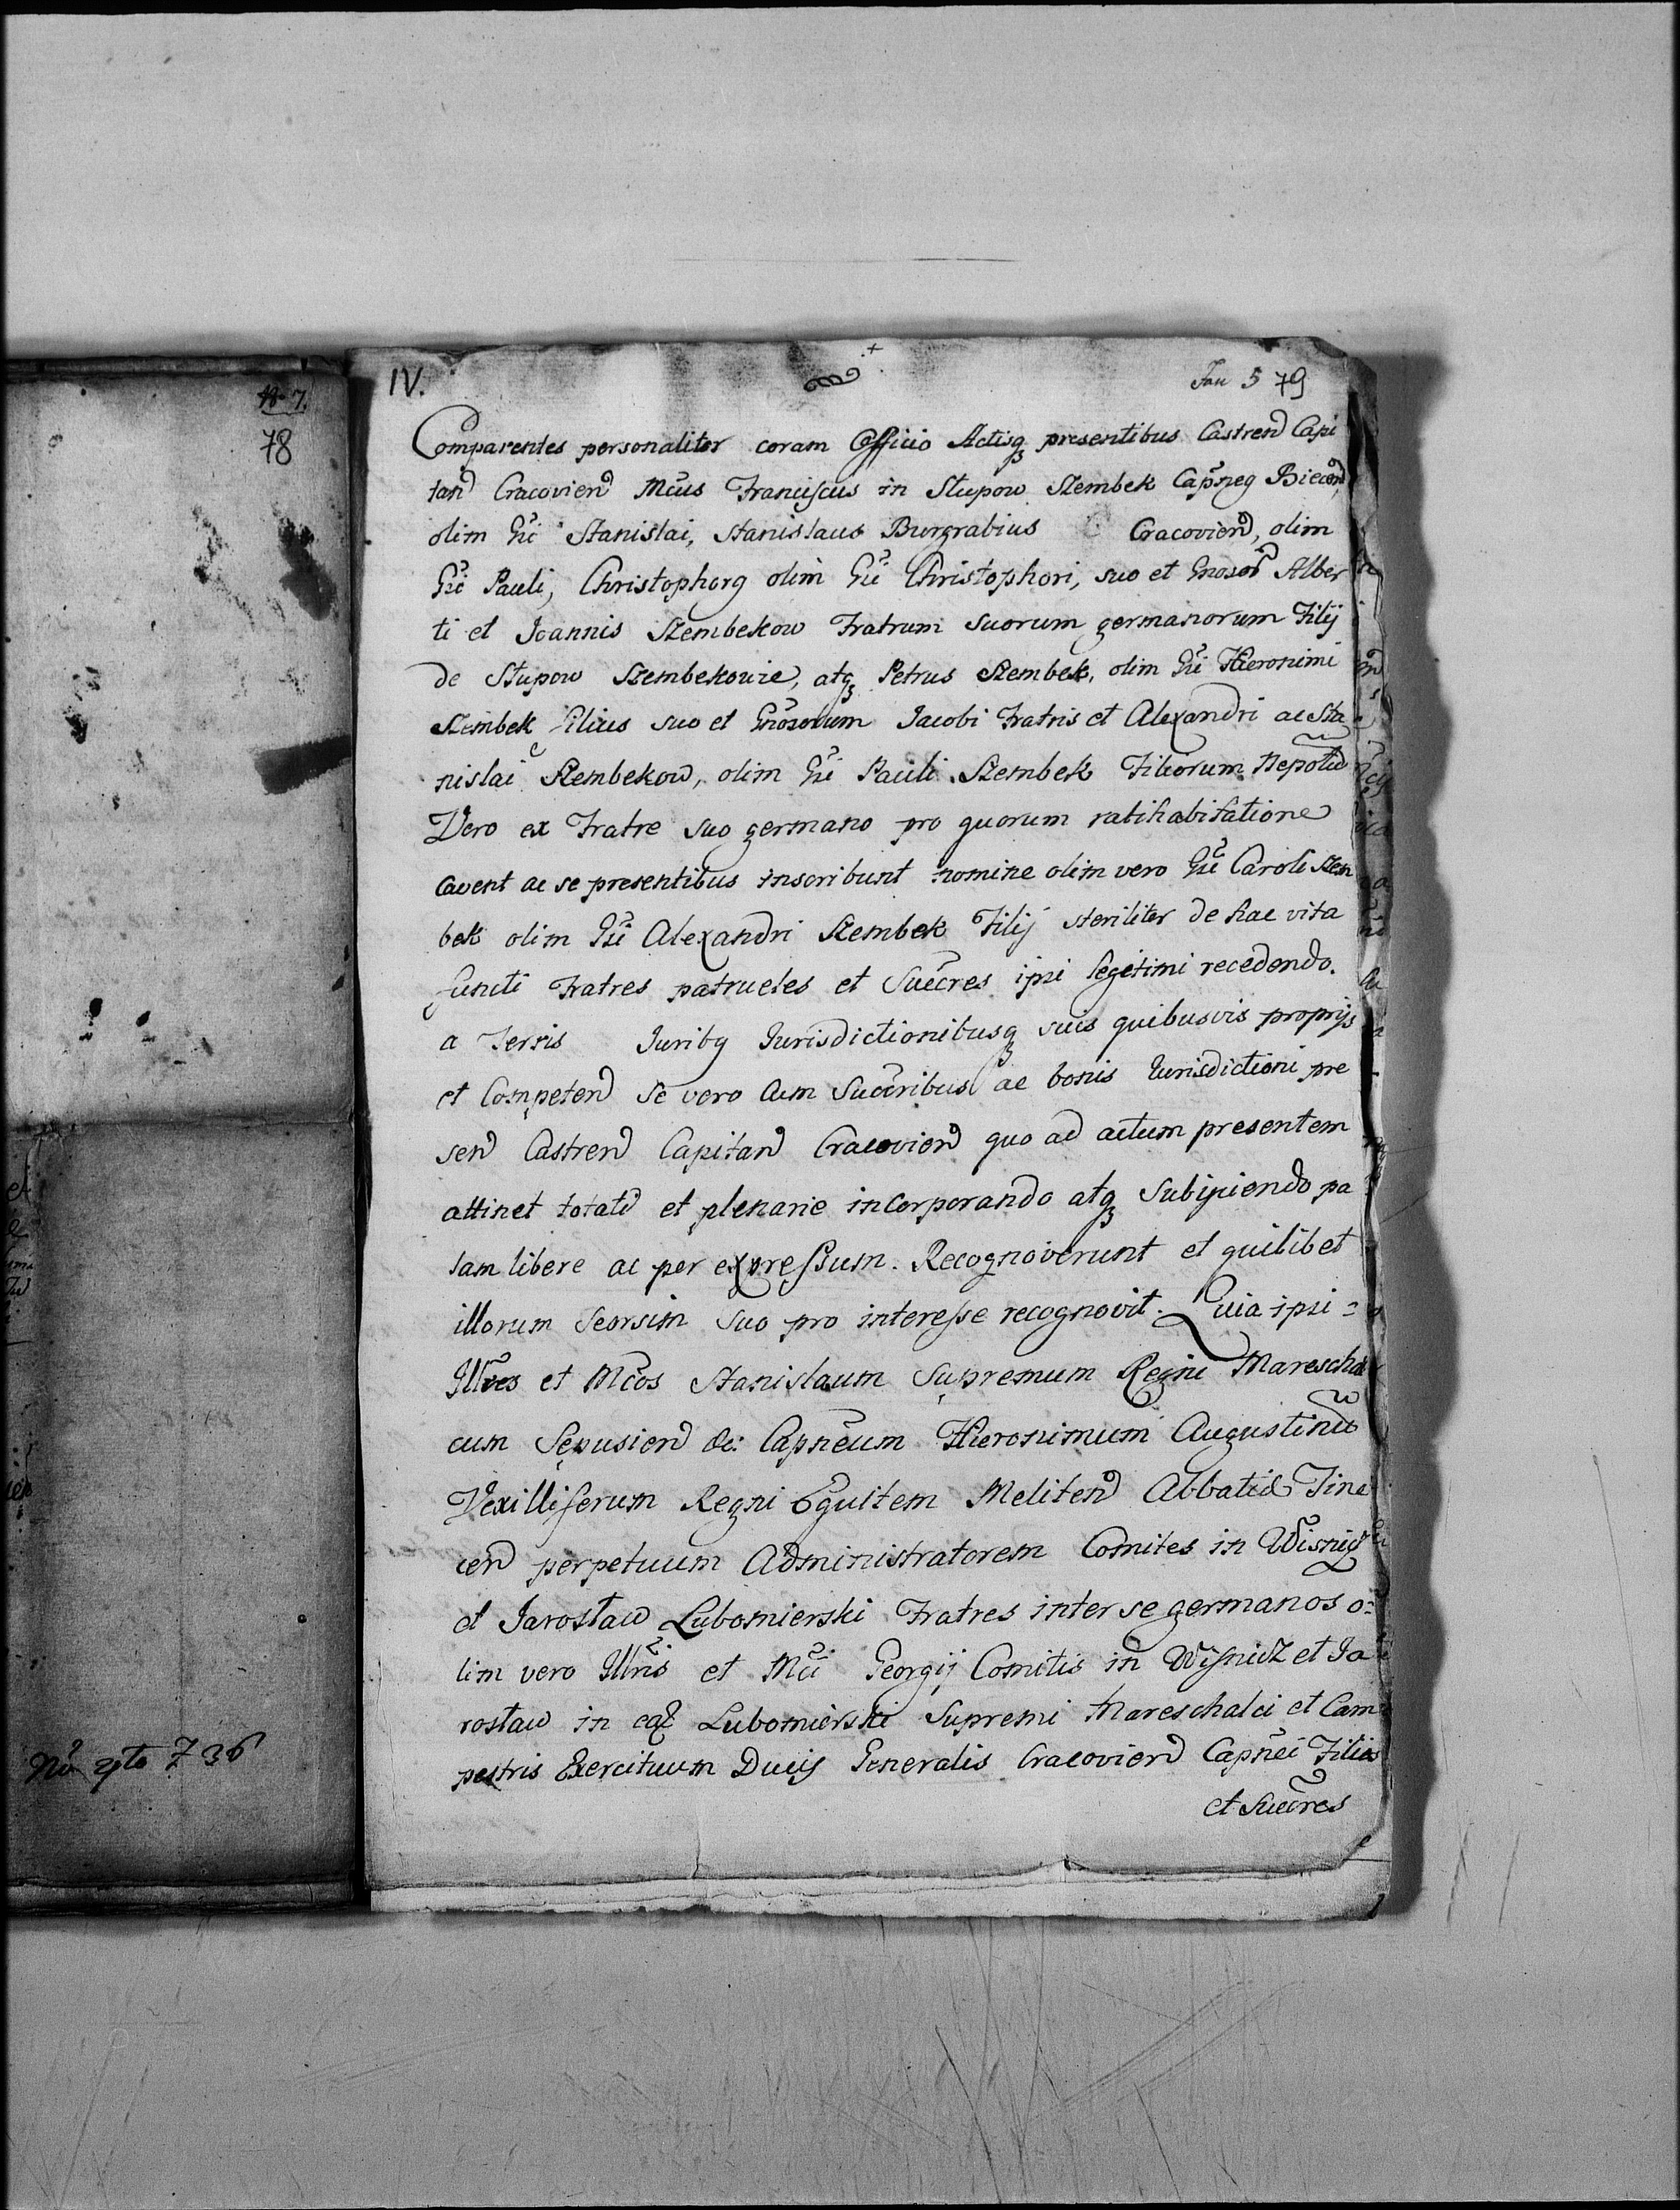 N-7.
78
Nō 2to 736
IV.
Fau 5 79
Comparentes personaliter coram Officio Actisq presentibus Castren Capi
tan Cracovien Mcus Franciscus in Słupow Szembek Capneg Biecen,
olim Gsi Stanislai, Stanislaus Burgrabius Cracovien, olim
Gsi Pauli, Christophorg olim Gsi Christophori, suo et Gnosor Alber
ti et Joannis Szembekow Fratrum suorum germanorum Filij
de Słupow Szembekowie, atq Petrus Szembek, olim Gsi Hieronimi
Szembek Filius suo et Gnosorum Jacobi Fratris et Alexandri ac Sta
nislai Szembekow, olim Gsi Pauli Szembek Filiorum Nepotu
Vero ex Fratre suo germano pro quorum ratihabitatione
cavent ac se presentibus inscribunt nomine olim vero Gsi Caroli Szem
bek olim Gsi Alexandri Szembek Filij steriliter de hac vita
functi Fratres patrueles et Succres ipsi legitimi recedendo.
a Terris Juribg Jurisdictionibusq suis quibusvis proprijs
et Competen se vero cum Succribus ac bonis Jurisdictioni pre
sen Castren Capitan Cracovien quo ad actum presentem
attinet totalr et plenarie incorporando atq subijciendo pa
lam libere ac per expressum. Recognoverunt et quilibet
illorum seorsim suo pro interesse recognovit. Quia ipsi =
Illres et Mcos Stanislaum Supremum Regni Marescha
cum Scepusien &c: Capneum Hieronimum Augustinu
Vexilliferum Regni Equitem Meliten Abbatie Tine
cen perpetuum Administratorem Comites in Wisnicz
et Jarosław Lubomierski Fratres inter se germanos o=
lim vero Illris et Mci Georgij Comitis in Wisnicz et Ja
rosław in eaq Lubomierski Supremi Mareschalci et Cam
pestris Exercituum Ducis Generalis Cracovien Capnei Filios
et Succres